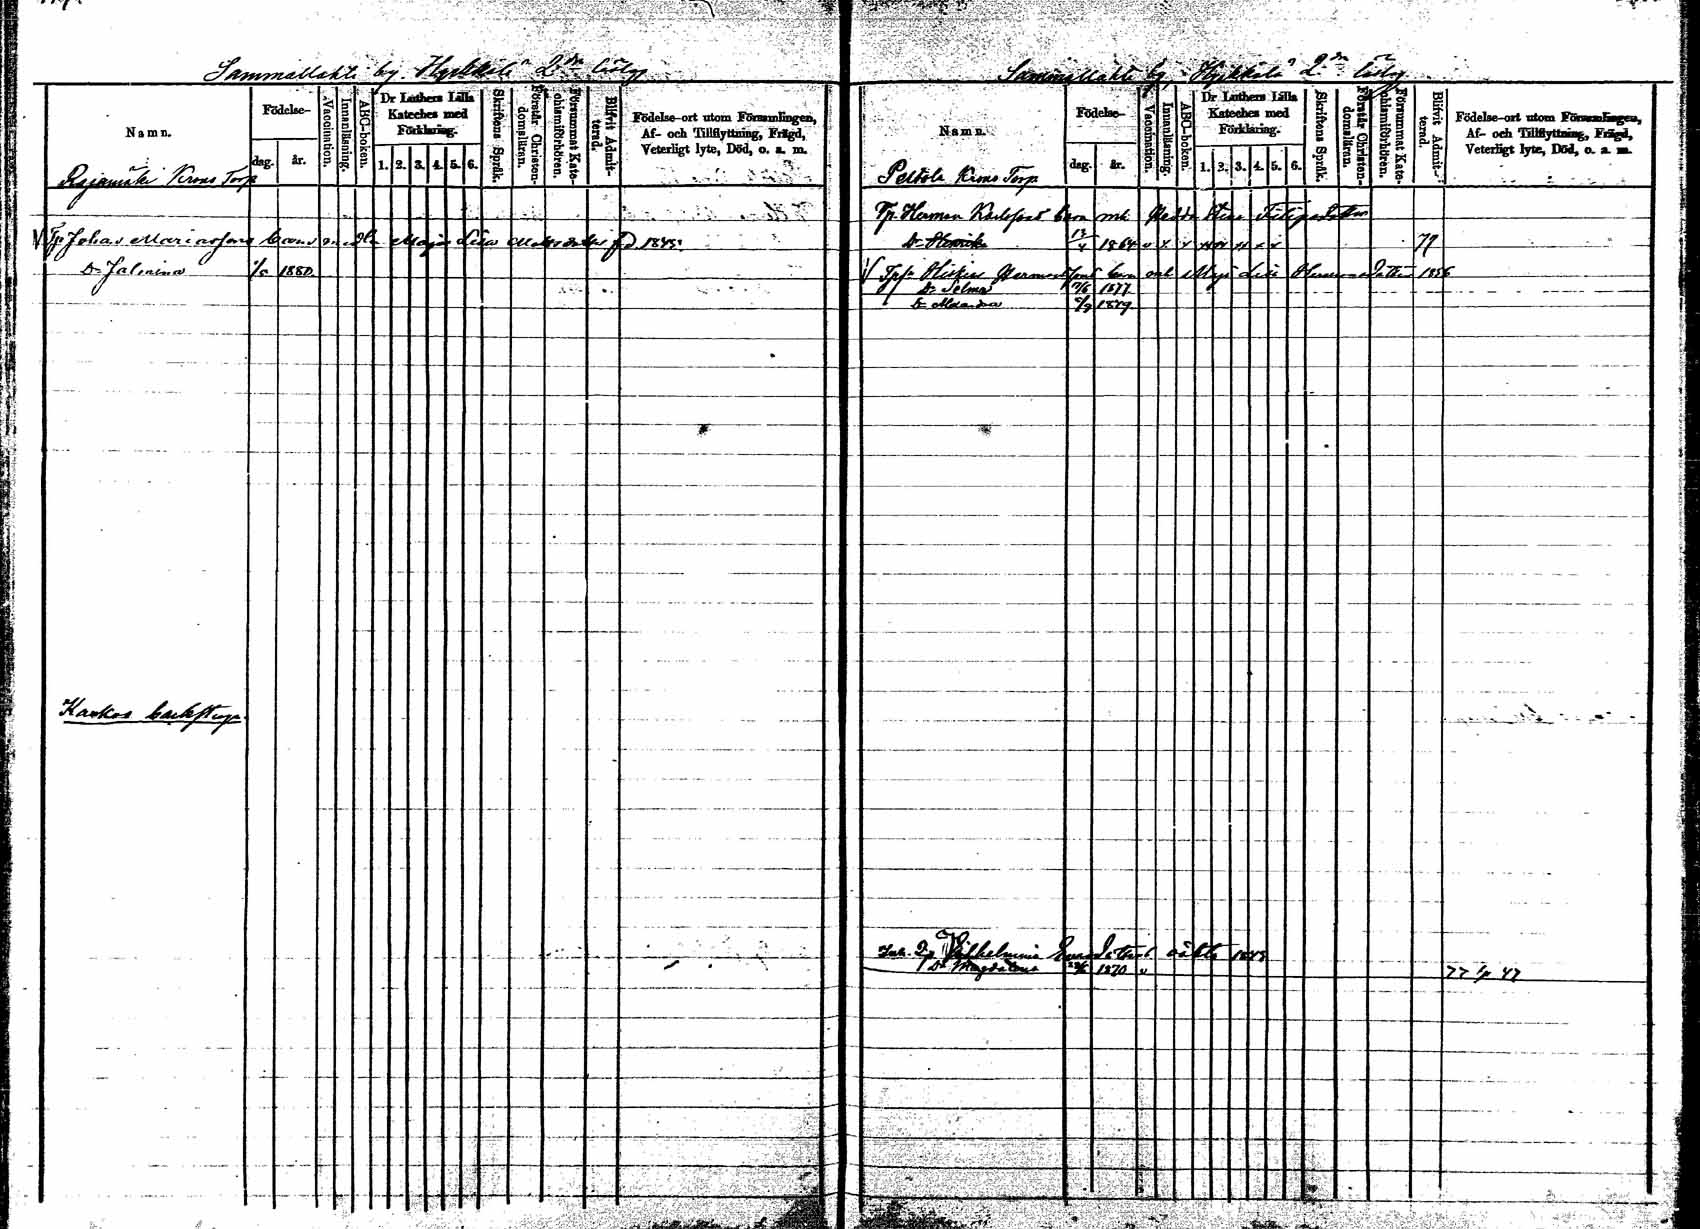 Sammallahti by. Hyrkkölä 2dra bolag
Namn.
Födelse-
dag. år.
Vaccination.
Innanläsning.
ABC-boken.
Dr Luthers Lilla Kateches med Förklaring.
1. 2. 3. 4. 5. 6.
Skriftens Språk.
Förstår Christendomsläran.
Försummat Katechismiförhören.
Blifvit Admitterad.
Födelse-ort utom Församlingen,
Af- och Tillflyttning, Frägd,
Veterligt lyte, Död, o. a. m.
Rajamäki Krono Torp
Tp. Johan Mariasson barn m Maja Lisa Mattsdotter fd 1845.
D. Jalmina 1880
Backstuga
Sammallahti by Hyrkkölä 2dra
Namn.
Födelse-
dag. år.
Vaccination.
Innanläsning.
ABC-boken.
Dr Luthers Lilla Kateches med Förklaring.
1. 2. 3. 4. 5. 6.
Skriftens Språk.
Förstår Christendomsläran.
Försummat Katechismiförhören.
Blifvit Admitterad.
Födelse-ort utom Församlingen,
Af- och Tillflyttning, Frägd,
Veterligt lyte, Död, o. a. m.
Peltola Krono Torp
Tp. Herman Karlssons barn m Hedda Stina Filipsdotter
D. Henrika 13/4 1864 v x x x x x x x 79
Hermansson barn m Maja Lisa Hermansdotter 1856
D. Selma 1877
D. Alexandra 1879
Vilhelmina Evasdotter oäkta 1848
D. Magdalena 1870 v 77 47